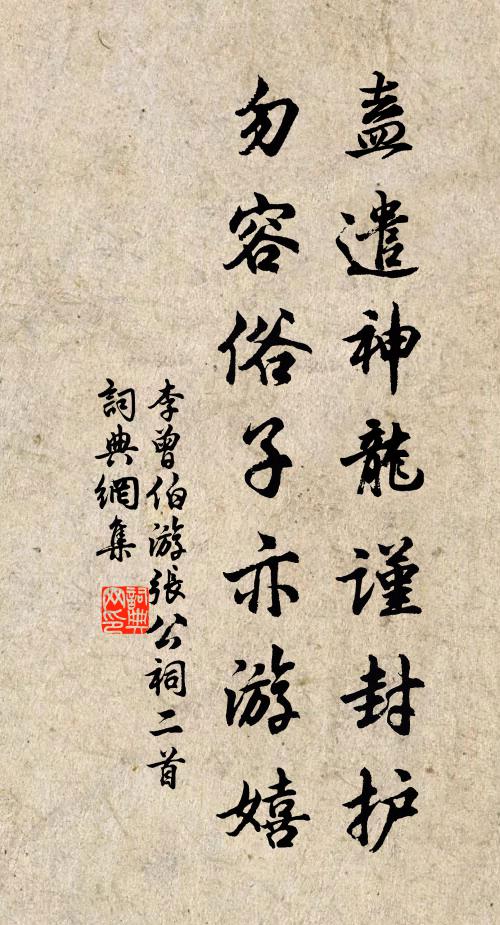 盍遣神龍谨封护
勿容俗子亦游嬉
李曾伯游張公祠二首
詞典網集
詞典
网印